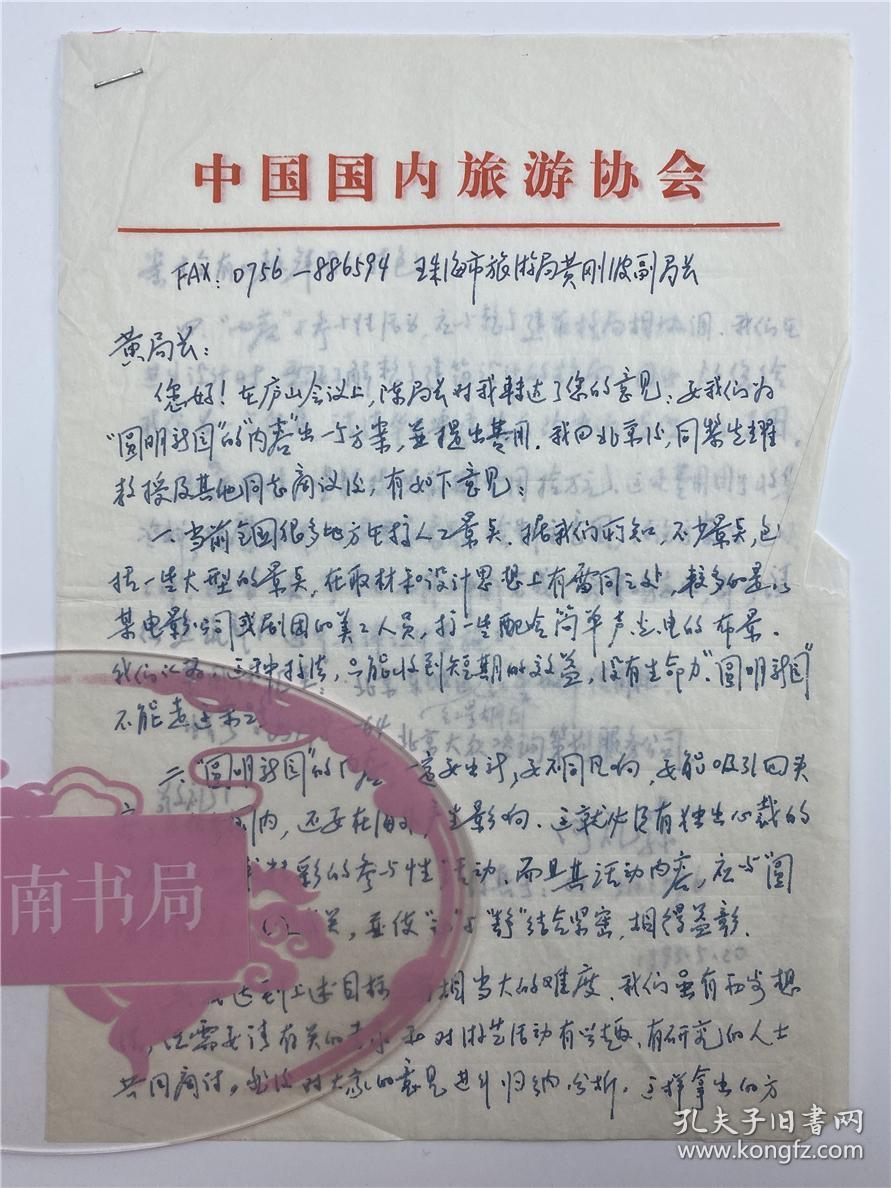 中国国内旅游协会
FAX: 0756—886594 珠海市旅游局黄刚波副局长
黄局长：
您好！在庐山会议上，陈局长对我转达了您的意见：要我们为
“圆明新园”的“内容”出一个方案，并提出费用。我回北京后，同黎先耀
教授及其他同志商议后，有如下意见：
一、当前全国很多地方在搞人工景点。据我们所知，不少景点，包
括一些大型的景点，在取材和设计思想上有雷同之处，较多的是以
某电影公司或剧团的美工人员，搞一些配合简单声光电的布景。
我们认为，这种搞法，只能收到短期的效益，没有生命力。“圆明新园”
不能走这
二、“圆明新园”的内容 一定要出新，要不同凡响，要能吸引回头
内，还要在海外产生影响。这就必须有独出心裁的
精彩的参与性活动。而且其活动内容，应与“圆
关，并使“动”与“静”结合紧密，相得益彰。
达到上述目标 相当大的难度。我们虽有初步想
还需要请有关的专家和对游艺活动有兴趣、有研究的人士
共同商讨，然后对大家的意见进行归纳分析。这样拿出的方
南书局
孔夫子旧书网
www.kongfz.com